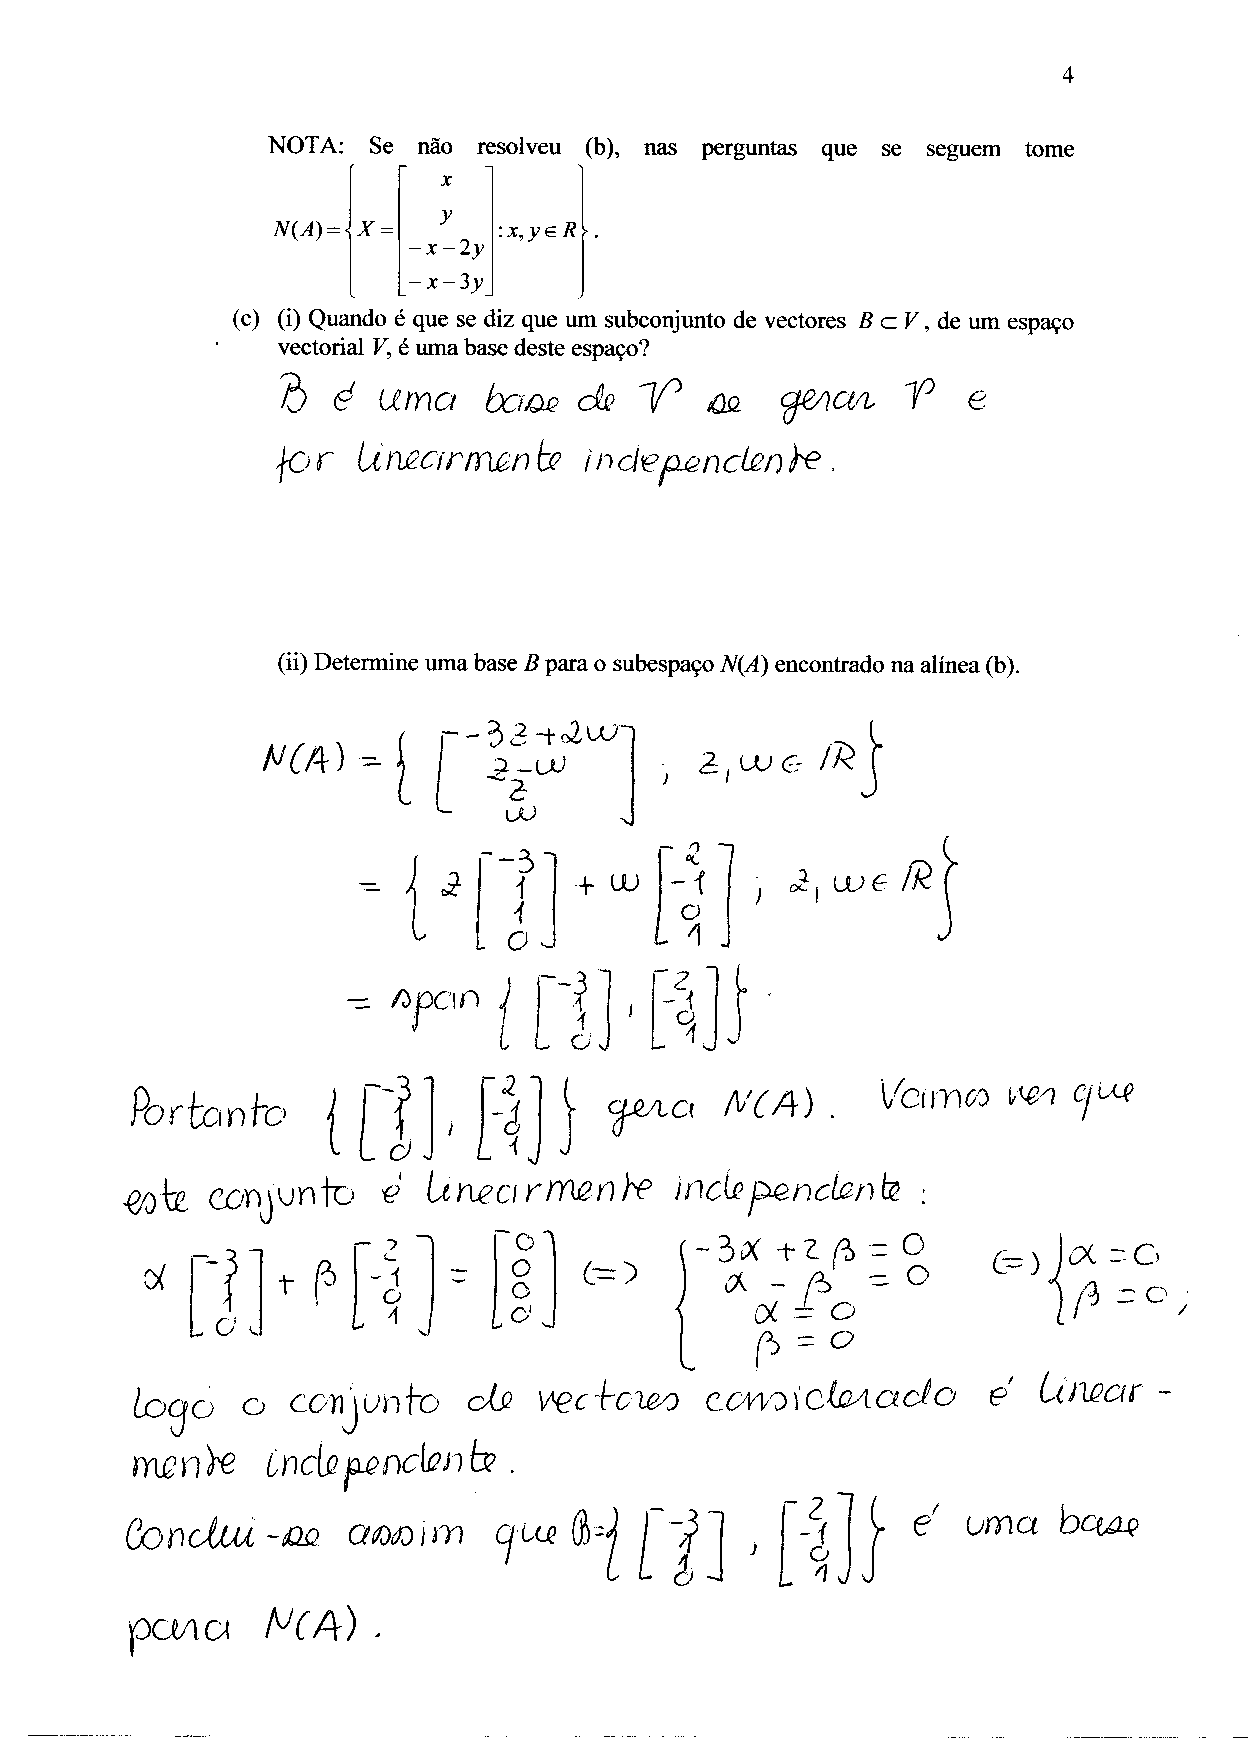 4
NOTA: Se não resolveu (b), nas perguntas que se seguem tome
N(A) = { X = [ x ; y ; -x-2y ; -x-3y ] : x, y ∈ R }.
(c) (i) Quando é que se diz que um subconjunto de vectores B ⊂ V, de um espaço
vectorial V, é uma base deste espaço?
B é uma base de V se gerar V e
for linearmente independente.
(ii) Determine uma base B para o subespaço N(A) encontrado na alínea (b).
N(A) = { [ -3z+2w ; z-w ; z ; w ] ; z, w ∈ ℝ }
= { z [ -3 ; 1 ; 1 ; 0 ] + w [ 2 ; -1 ; 0 ; 1 ] ; z, w ∈ ℝ }
= span { [ -3 ; 1 ; 1 ; 0 ], [ 2 ; -1 ; 0 ; 1 ] }.
Portanto { [ -3 ; 1 ; 1 ; 0 ], [ 2 ; -1 ; 0 ; 1 ] } gera N(A). Vamos ver que
este conjunto é linearmente independente :
α [ -3 ; 1 ; 1 ; 0 ] + β [ 2 ; -1 ; 0 ; 1 ] = [ 0 ; 0 ; 0 ; 0 ] (=) { -3α + 2β = 0 ; α - β = 0 ; α = 0 ; β = 0 (=) { α = 0 ; β = 0 ;
logo o conjunto de vectores considerado é linear-
mente independente.
Conclui-se assim que B = { [ -3 ; 1 ; 1 ; 0 ], [ 2 ; -1 ; 0 ; 1 ] } é uma base
para N(A).